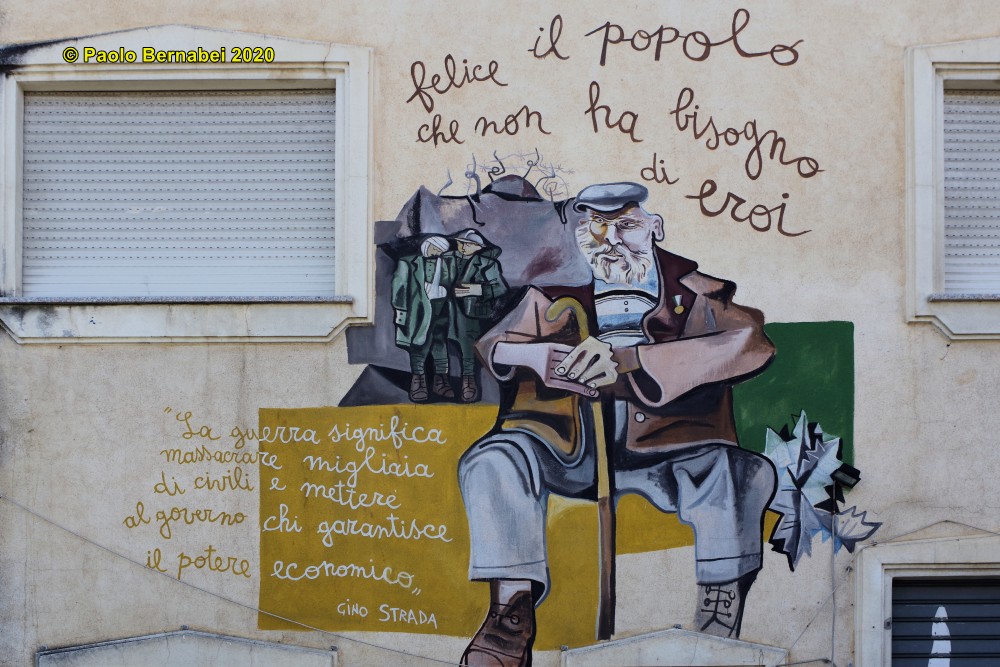 © Paolo Bernabei 2020
felice il popolo
che non ha bisogno
di eroi
"La guerra significa
massacrare migliaia
di civili e mettere
al governo chi garantisce
il potere economico„
GINO STRADA